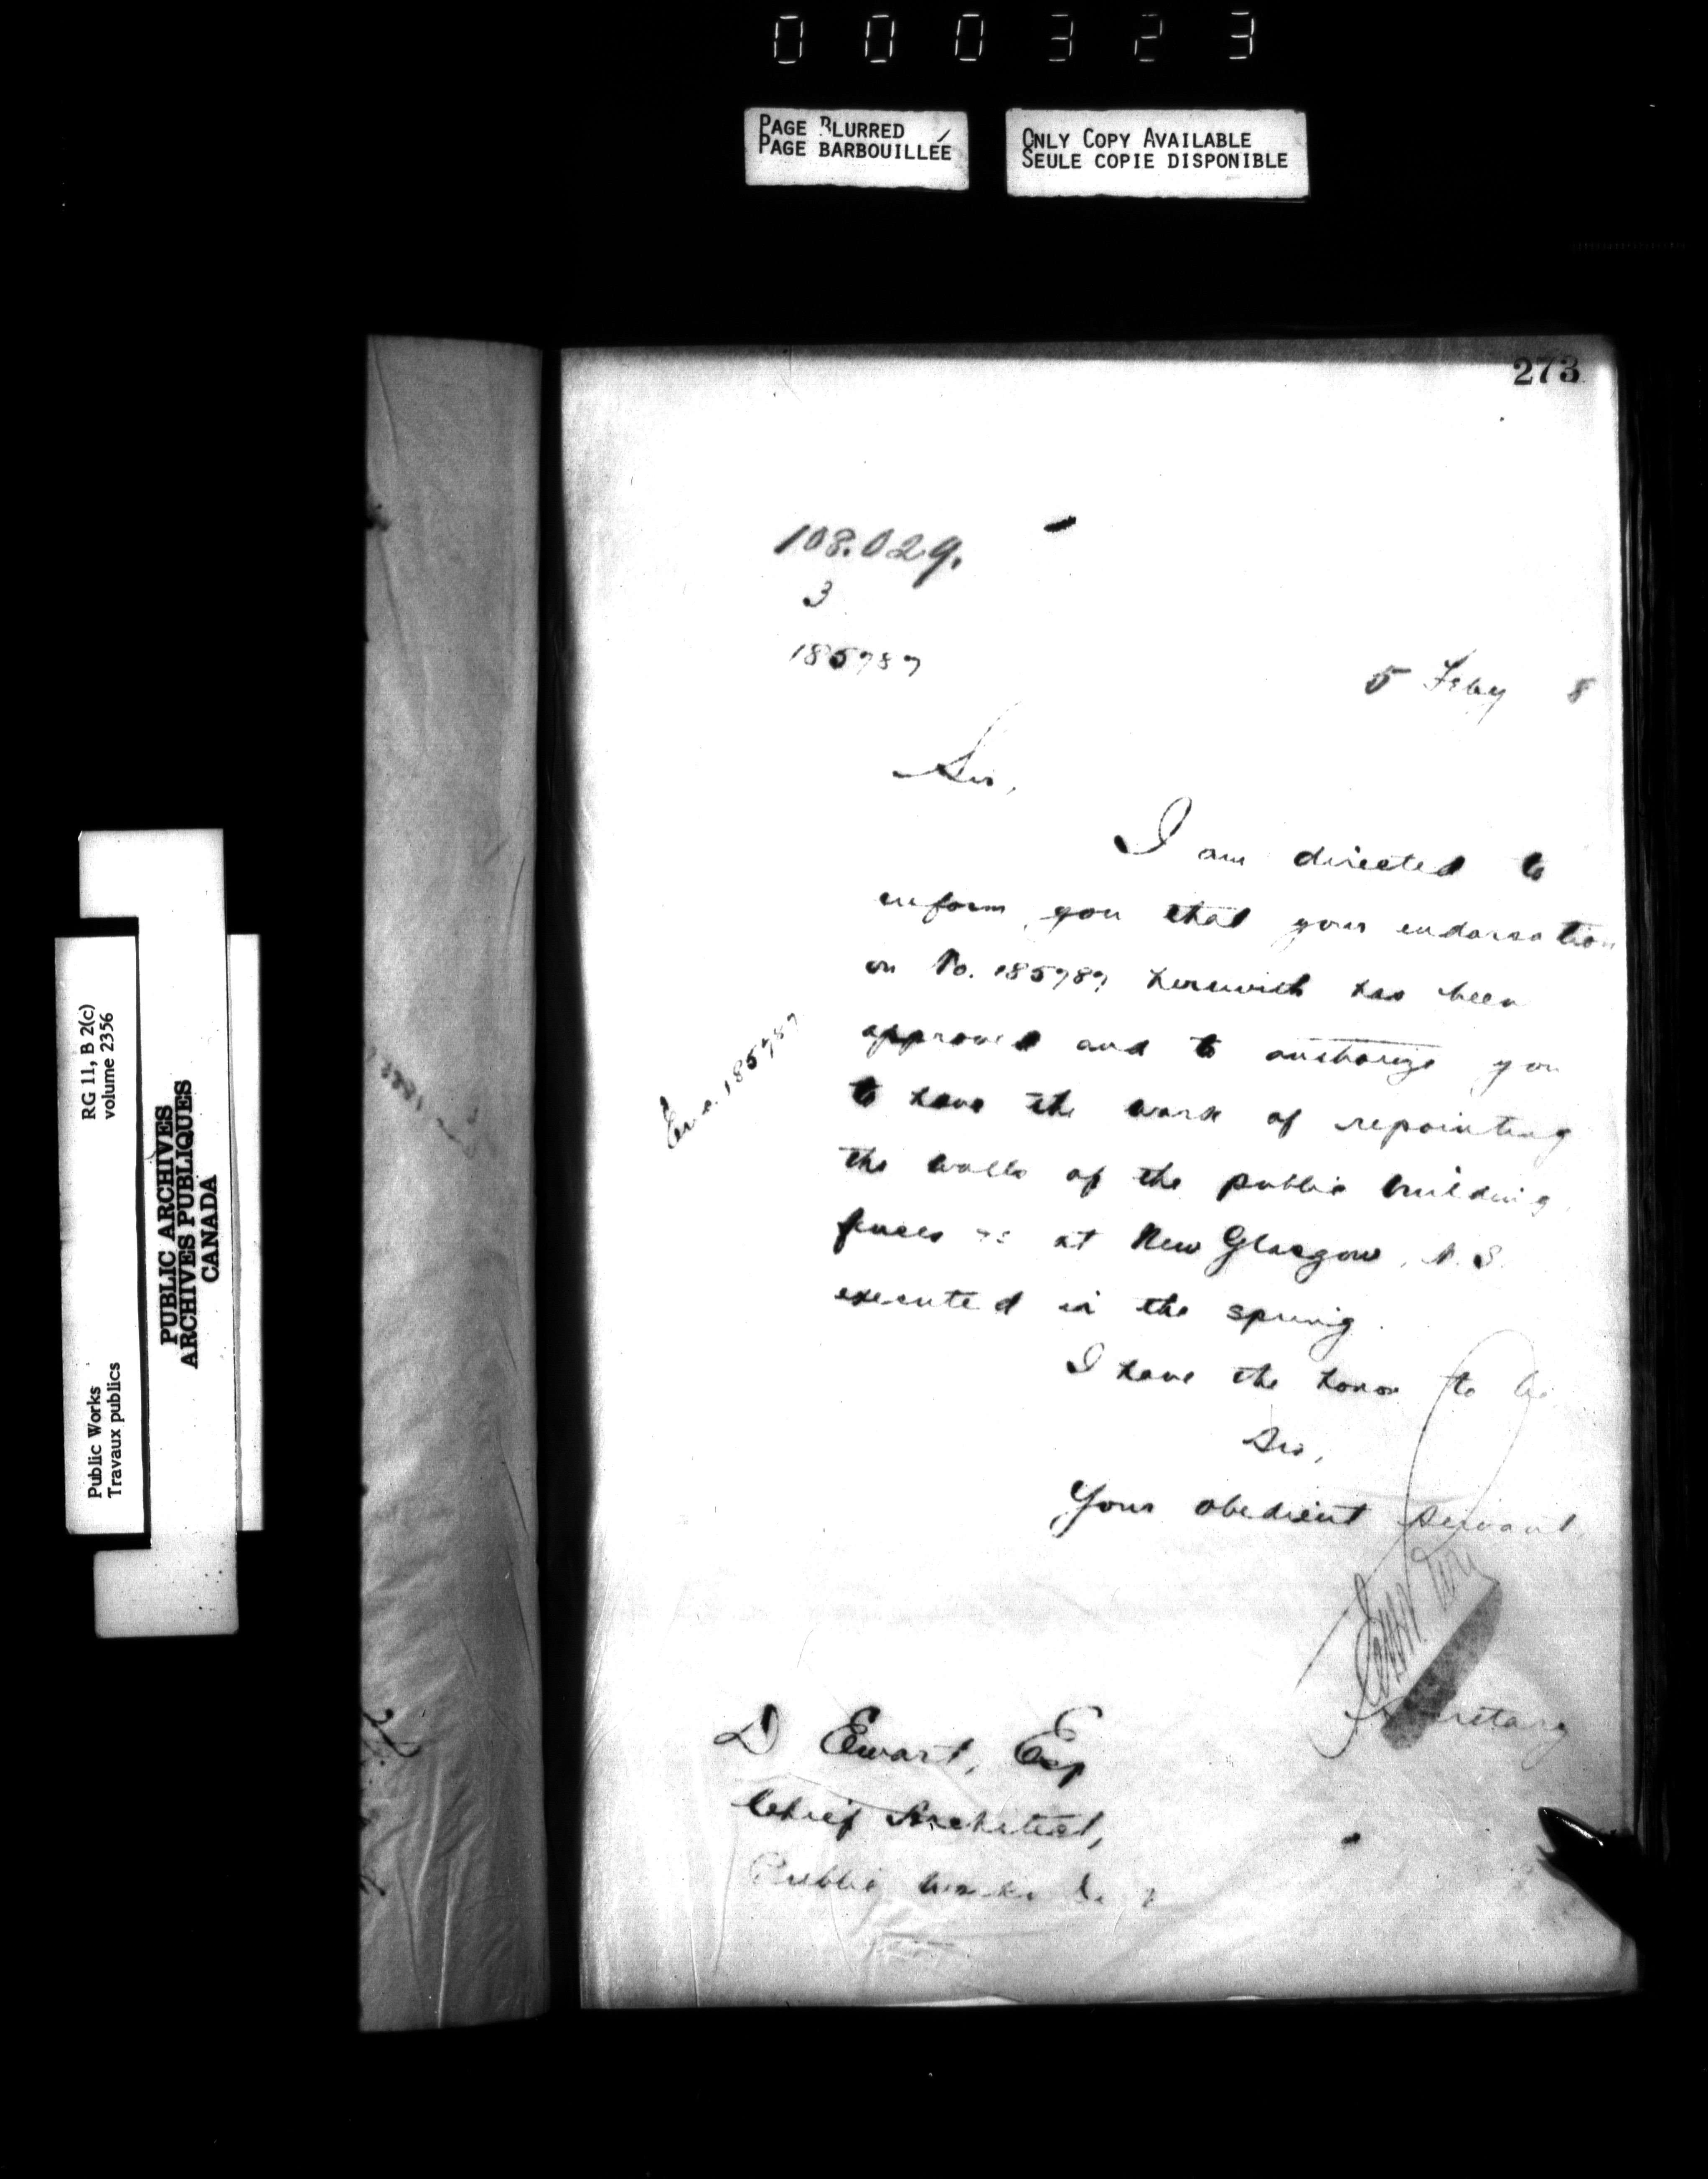 000323
PAGE BLURRED
PAGE BARBOUILLÉE
ONLY COPY AVAILABLE
SEULE COPIE DISPONIBLE
273
108.029.
3
185787
5 Feby 8
Sir,
I am directed to
inform you that your endorsation
on No. 185787 herewith has been
approved and to authorize you
to have the work of repointing
the walls of the public building,
fences &c at New Glasgow, N.S.
executed in the spring.
I have the honor to be
Sir,
Your obedient servant,
Secretary
Enc. 185787
D Ewart, Esq
Chief Architect,
Public Works
RG 11, B 2(c)
volume 2356
Public Works
Travaux publics
PUBLIC ARCHIVES
ARCHIVES PUBLIQUES
CANADA